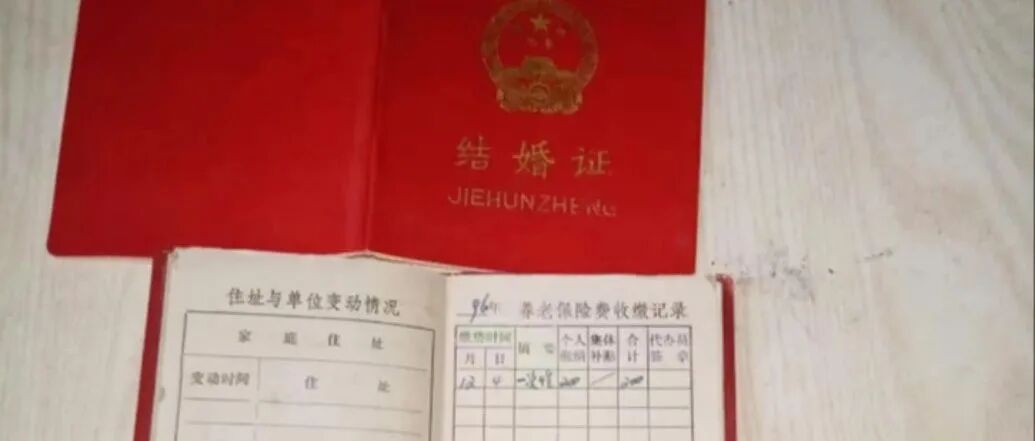 结婚证
JIEHUNZHENG
住址与单位变动情况
家庭住址
变动时间 住址
96年 养老保险费收缴记录
缴费时间 摘要 个人缴纳 集体补贴 合计 代办员签章
月 日
12 4 一次性 200 / 200